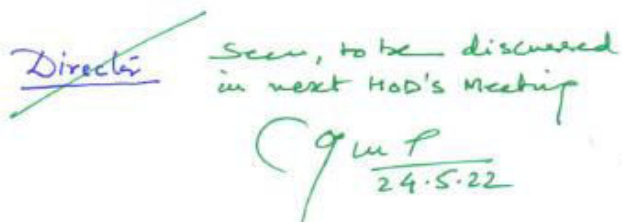 Director
Seen, to be discussed
in next HOD's Meeting
24.5.22